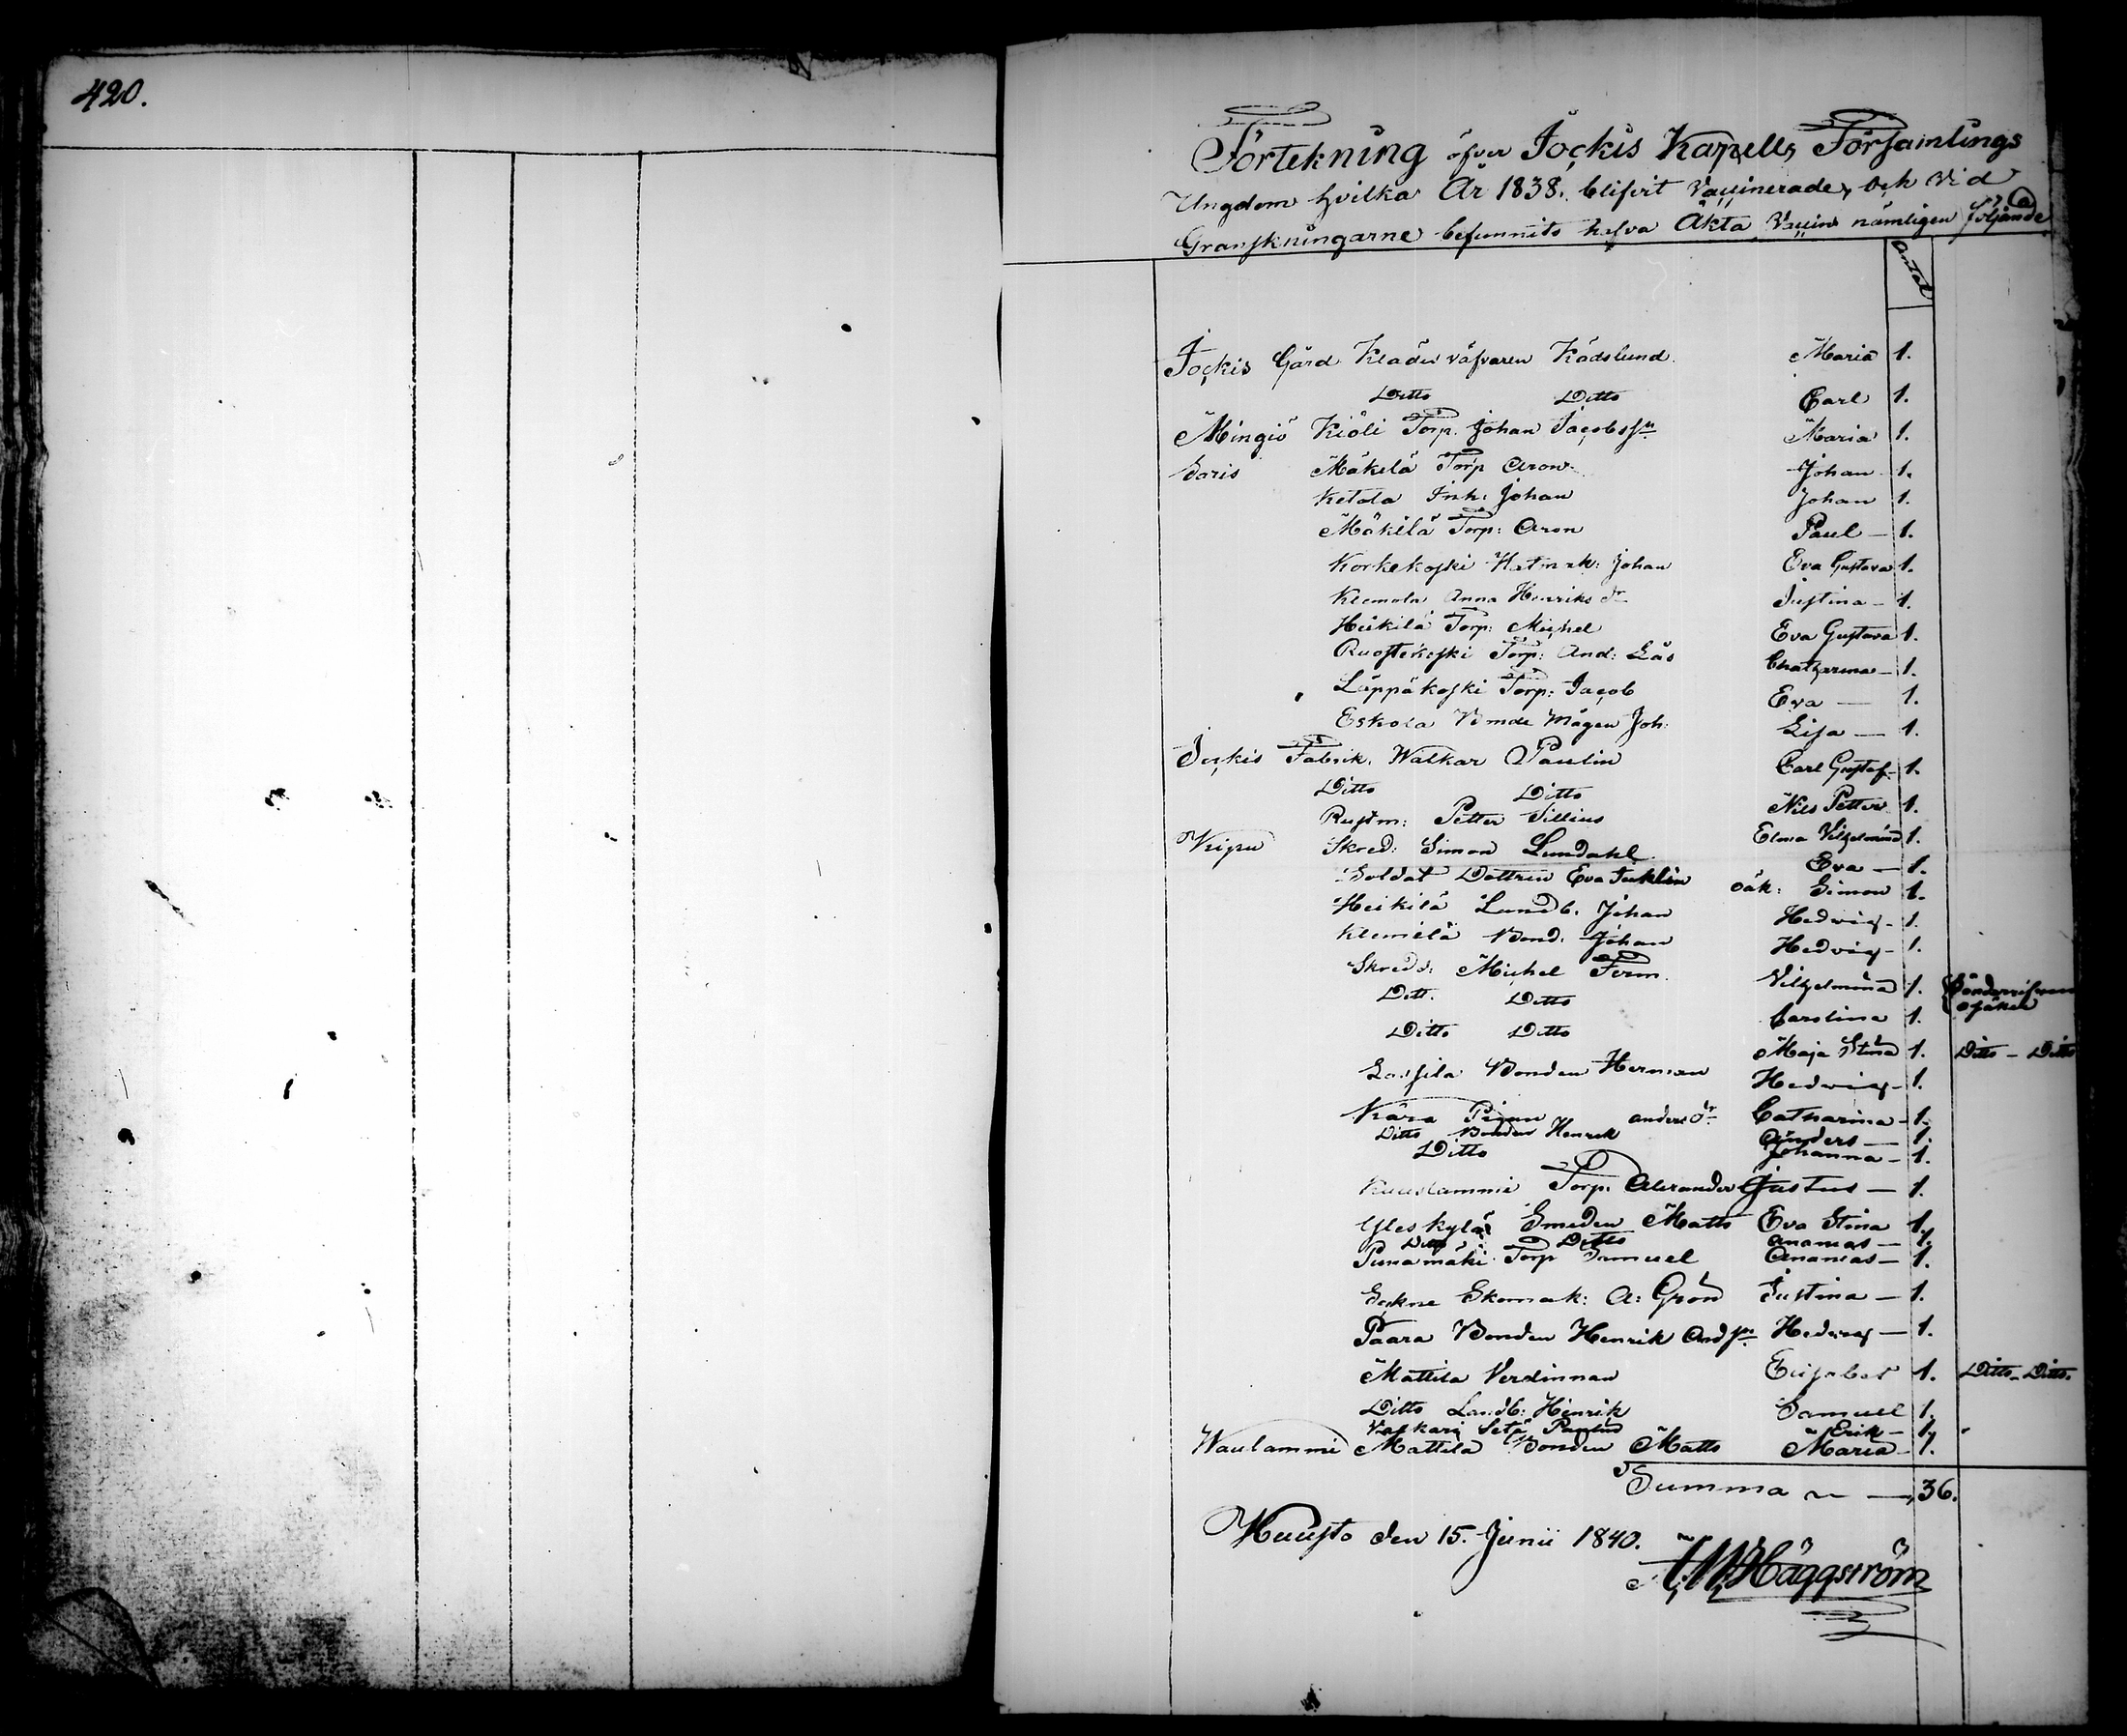 420.
Förtekning öfver Jockis Kapells Församlings
Ungdom hvilka År 1838. blifvit Vaccinerade, och vid
Granskningarne befunnits hafva Äkta Vaccin nämligen följande
Antal
Jockis Gård Klädes väfvaren Kådslund Maria 1.
Ditto Ditto Carl 1.
Mingiö Kiöli Torp. Johan Jacobss:n Maria 1.
Saris Mäkelä Torp Aron Johan 1.
Ketola Inh: Johan Johan 1.
Mäkilä Torp: Aron Paul — 1.
Korkekoski Hatmak: Johan Eva Gustava 1.
Klemola Anna Henriks dr Justina — 1.
Heikilä Torp: Michel Eva Gustava 1.
Ruostekoski Torp: And: Eva Chatharina — 1.
Läppäkoski Torp: Jacob Eva — 1.
Eskola Bonde Mågen Joh: Lisa — 1.
Jockis Fabrik. Walkar Paulin Carl Gustaf 1.
Ditto Ditto Nils Petter 1.
Rustm: Petter Sillius Elma Vilhelmina 1.
Skred: Simon Lundahl Eva — 1.
Soldat Dottren Eva oäk: Simon 1.
Heikilä Landb. Johan Hedvig — 1.
Klemelä Bond. Johan Hedvig — 1.
Skredd: Michel Form Vilhelmina 1.
Ditt. Ditto Carolina 1.
Ditto Ditto Maja Stina 1. Ditto — Ditto
Lassila Bonden Herman Hedvig — 1.
Kära Pigan anders dr Catharina — 1.
Ditto Bonden Henrik Anders — 1.
Ditto Johanna — 1.
Kuuslammi Torp: Alexander Justus — 1.
Yleskylä Smeden Matts Eva Stina 1.
Ditto Ditto Ananias — 1.
Punamäki Torp Samuel Ananias — 1.
Skomak: A: Grön Justina — 1.
Paara Bonden Henrik And s:n Hedvig — 1.
Mattila Verdinnan Elisabet 1. Ditto — Ditto.
Ditto Landb: Hinrik Samuel 1.
Vaskari Setä Paulus Erik — 1.
Waulammi Mattila Bonden Matts Maria — 1.
Summa — 36.
Huusto den 15. Junii 1840.
Häggström